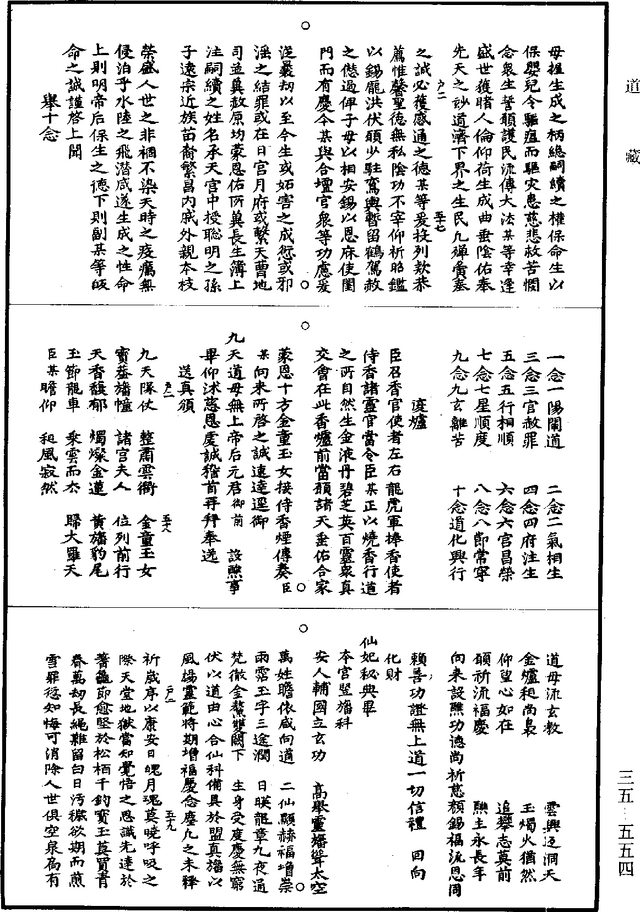 道藏
母握生成之柄總嗣續之權保命生以
保嬰兒令驅瘟而驅灾惠慈悲救苦憫
念衆生誓願護民流傳大法某等幸逢
盛世獲睹人倫仰荷生成曲垂陰佑奉
先天之妙道濟下界之生民凡殫
之誠必獲感通之德某等爰投列欵恭
薦惟馨聖德無私陰功不宰仰祈昭鑑
以錫龍洪伏願少駐鸞輿暫留鶴駕赦
之愆過俾子母以相安錫以恩庥使閨
門而有慶令某與合壇官衆等功應爰
從曩劫以至今生或妬害之成愆或邪
滛之結罪或在日宮月府或繫天曹地
司並兾赦原均蒙恩佑所兾長生簿上
注嗣續之姓名承天宮中授聰明之孫
子遠宗近族苗裔繁昌内戚外親本枝
榮盛人世之非禍不染天時之疫癘無
侵泊乎水陸之飛潛咸遂生成之性命
上則明帝后保生之德下則副某等皈
命之誠謹啓上聞
舉十念
一念一陽闡道 二念二氣相生
三念三官赦罪 四念四府注生
五念五行相順 六念六宮昌榮
七念七星順度 八念八節常寧
九念九玄離苦 十念道化興行
復爐
臣召香官使者左右龍虎軍捧香使者
侍香諸靈官當令臣某正以燒香行道
之所自然生金液丹碧芝英百靈衆真
交會在此香爐前當願諸天垂佑合家
蒙恩十方金童玉女接侍香煙傳奏臣
某向來所啓之誠速達逕御
九天道母無上帝后元君御前 設醮事
畢仰沐慈恩虔誠稽首再拜奉送
送真頌
九天隊仗 整肅雲衢 金童玉女
寳蓋旛幢 諸宮夫人 位列前行
天香馥郁 燭燦金蓮 黃旛豹尾
玉節龍車 乘雲而去 歸大羅天
臣某瞻仰 和風寂然
道母流玄教 雲興返洞天
金爐和尚裊 玉燭火猶然
仰望心如在 追攀志莫前
願祈流福慶 醮主永長年
向來設醮功德尚祈慈顏錫福流恩周
賴善功證無上道一切信禮 回向
化財
仙妃秘典畢
本宮竪旛科
安人輔國立玄功 高舉靈旛聳太空
萬姓瞻依咸向道 二仙顯赫福增崇
雨霑玉字三途潤 日暎龍章九夜通
梵徹金鰲雙闕下 生身受度慶無窮
伏以道由心合仙科備具於盟真旛以
風揚靈範將期增福慶念塵凡之未釋
祈歲序以康安日魄月魂莫曉呼吸之
際天堂地獄當知覺悟之思識先達於
蓍龜節愈堅於松栢千鈞寳玉莫買青
春萬劫長繩難留白日汚穢欲期而蕩
雪罪愆知悔可消除人世俱空泉扃有
三五—五五四